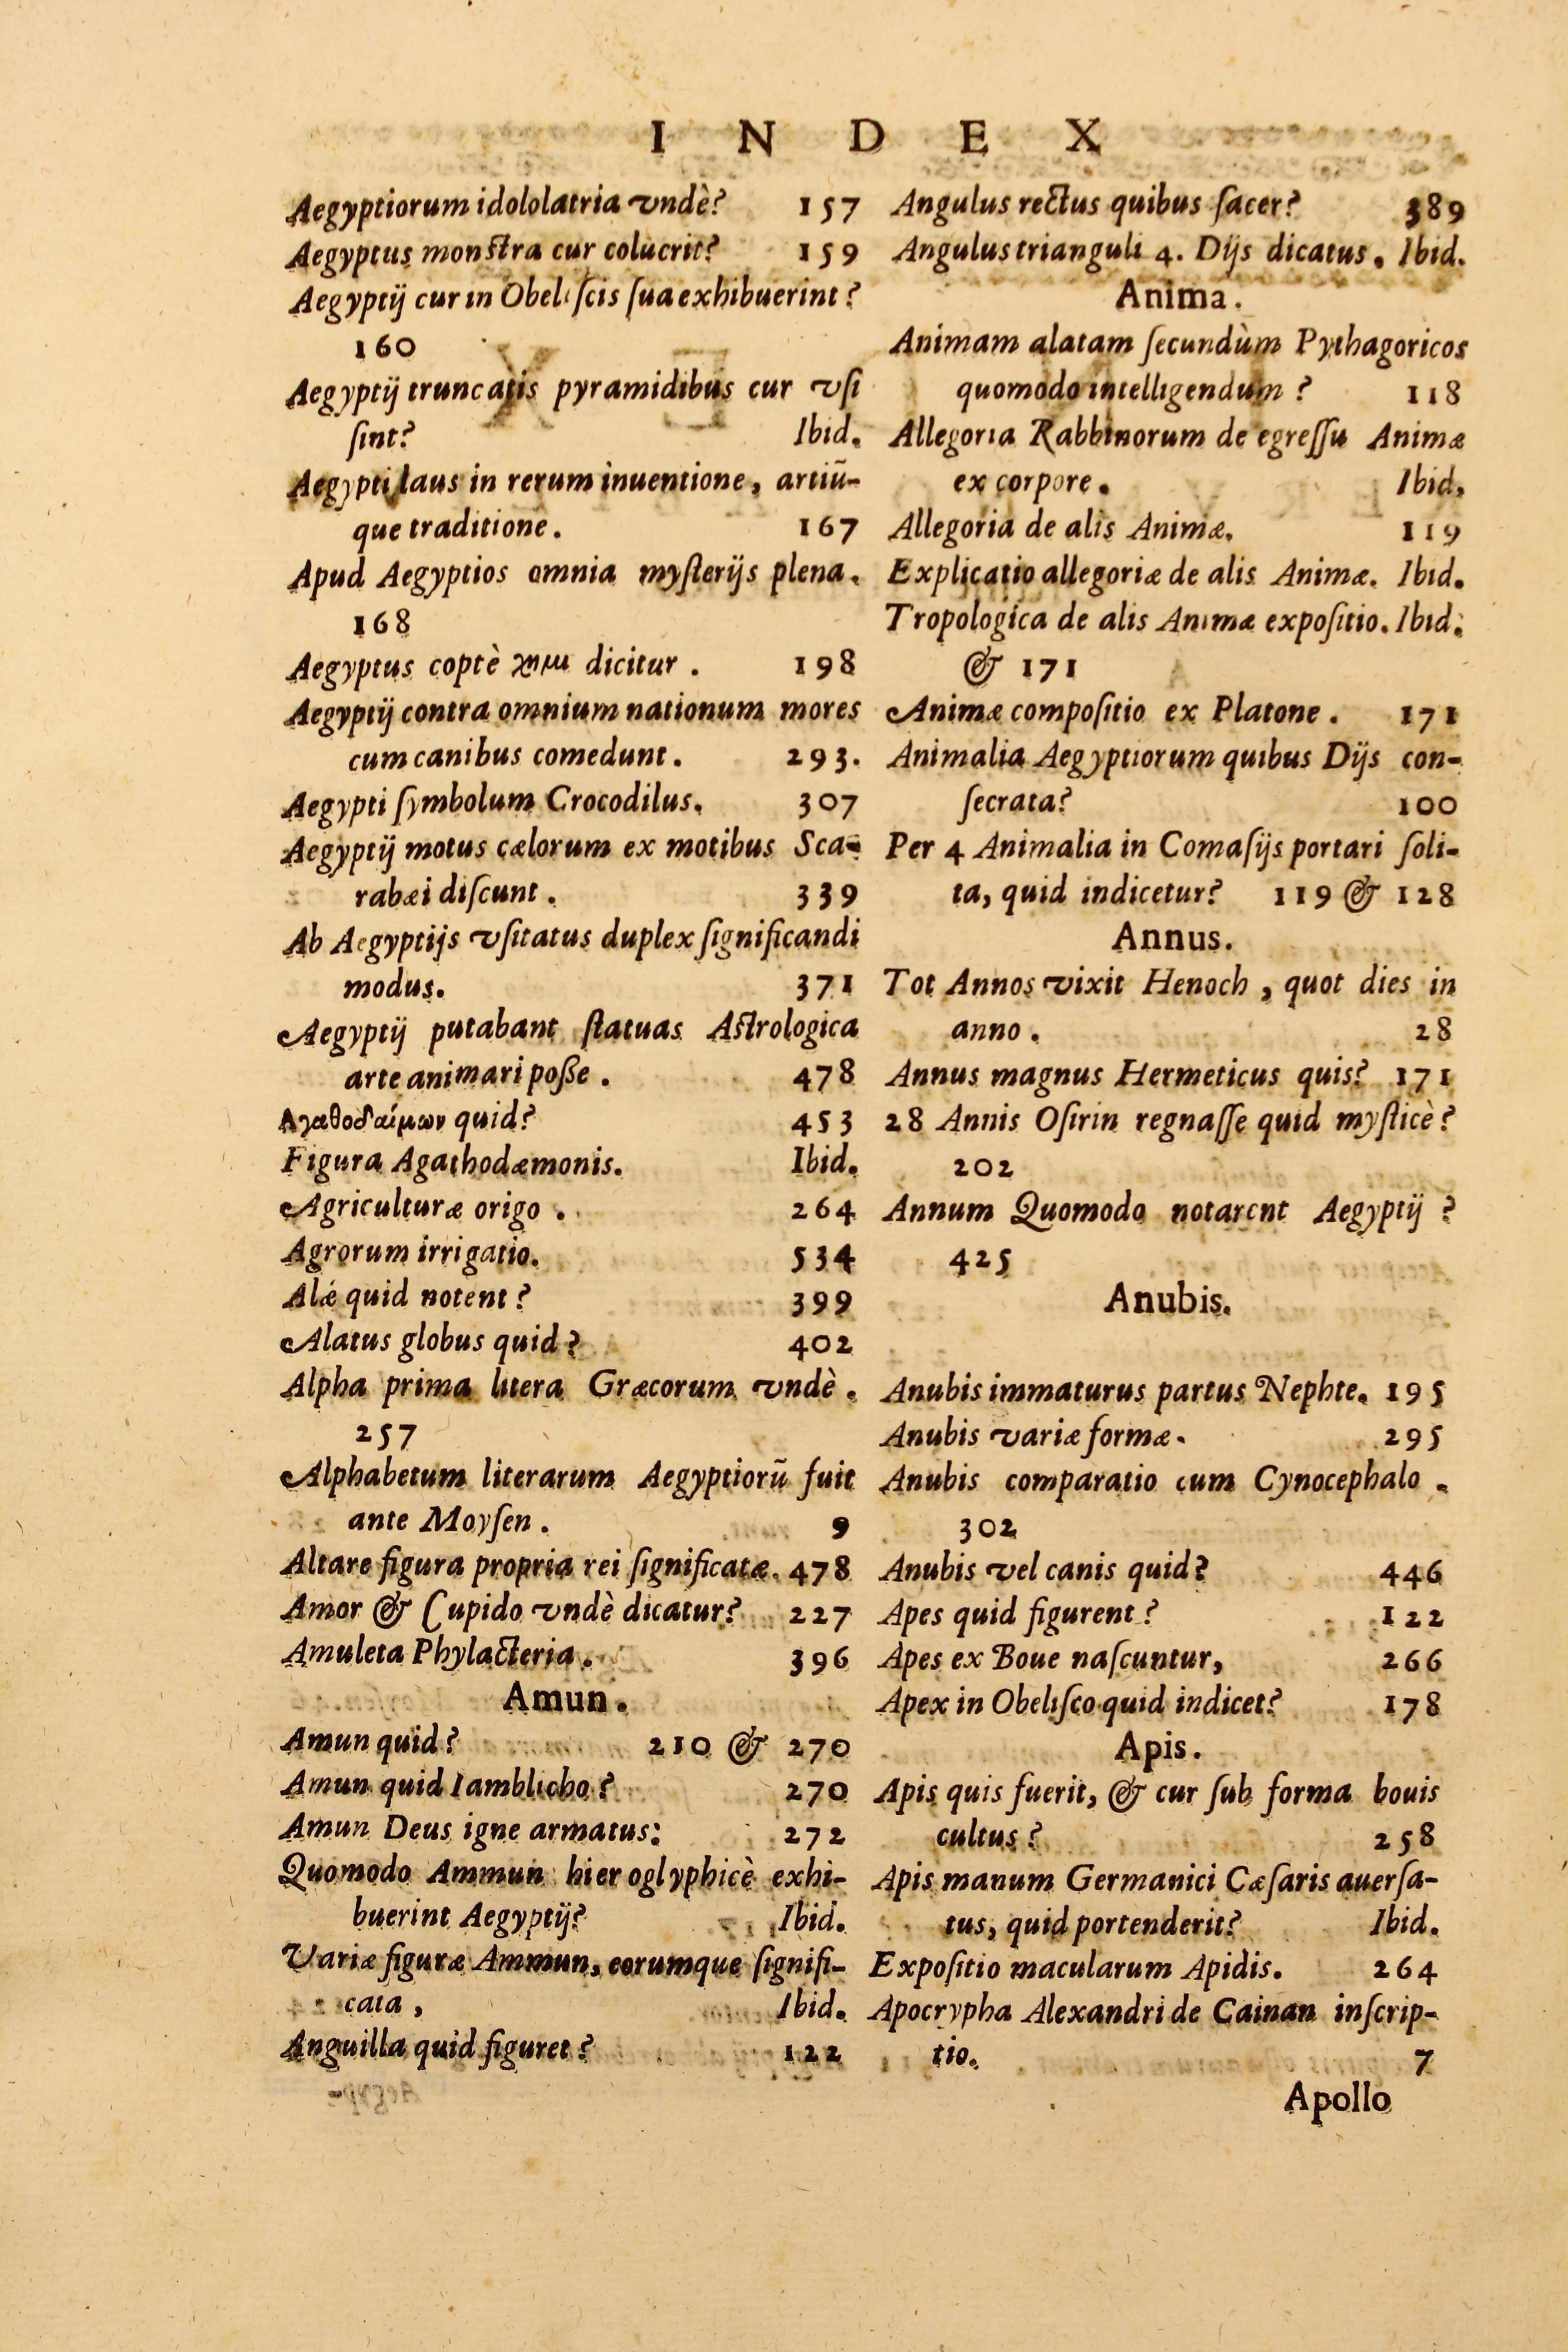 INDEX
Aegyptiorum idololatria vndè? 157
Aegyptus monstra cur colucrit? 159
Aegyptij cur in Obeliſcis ſua exhibuerint?
160
Aegyptij truncatis pyramidibus cur vſi
ſint? Ibid.
Aegypti laus in rerum inuentione, artiũ-
que traditione. 167
Apud Aegyptios omnia myſterijs plena.
168
Aegyptus coptè ⲭⲏⲙⲓ dicitur. 198
Aegyptij contra omnium nationum mores
cum canibus comedunt. 293.
Aegypti ſymbolum Crocodilus. 307
Aegyptij motus cælorum ex motibus Sca-
rabæi diſcunt. 339
Ab Aegyptijs vſitatus duplex ſignificandi
modus. 371
Aegyptij putabant ſtatuas Astrologica
arte animari poße. 478
Αγαθοδαίμων quid? 453
Figura Agathodæmonis. Ibid.
Agriculturæ origo. 264
Agrorum irrigatio. 534
Alæ quid notent? 399
Alatus globus quid? 402
Alpha prima litera Græcorum vndè.
257
Alphabetum literarum Aegyptiorũ fuit
ante Moyſen. 9
Altare figura propria rei ſignificatæ. 478
Amor & Cupido vndè dicatur? 227
Amuleta Phylacteria. 396
Amun.
Amun quid? 210 & 270
Amun quid Iamblicho? 270
Amun Deus igne armatus: 272
Quomodo Ammun hieroglyphicè exhi-
buerint Aegyptij? Ibid.
Variæ figuræ Ammun, eorumque ſignifi-
cata, Ibid.
Anguilla quid figuret? 122
Angulus rectus quibus ſacer? 389
Angulus trianguli 4. Dijs dicatus. Ibid.
Anima.
Animam alatam ſecundùm Pythagoricos
quomodo intelligendum? 118
Allegoria Rabbinorum de egreſſu Animæ
ex corpore. Ibid,
Allegoria de alis Animæ. 119
Explicatio allegoriæ de alis Animæ. Ibid.
Tropologica de alis Animæ expoſitio. Ibid.
& 171
Animæ compoſitio ex Platone. 171
Animalia Aegyptiorum quibus Dijs con-
ſecrata? 100
Per 4 Animalia in Comaſijs portari ſoli-
ta, quid indicetur? 119 & 128
Annus.
Tot Annos vixit Henoch, quot dies in
anno. 28
Annus magnus Hermeticus quis? 171
28 Annis Oſirin regnaſſe quid myſticè?
202
Annum Quomodo notarcnt Aegyptij?
425
Anubis.
Anubis immaturus partus Nephte. 195
Anubis variæ formæ. 295
Anubis comparatio cum Cynocephalo.
302
Anubis vel canis quid? 446
Apes quid figurent? 122
Apes ex Boue naſcuntur, 266
Apex in Obeliſco quid indicet? 178
Apis.
Apis quis fuerit, & cur ſub forma bouis
cultus? 258
Apis manum Germanici Cæſaris auerſa-
tus, quid portenderit? Ibid.
Expoſitio macularum Apidis. 264
Apocrypha Alexandri de Cainan inſcrip-
tio. 7
Apollo